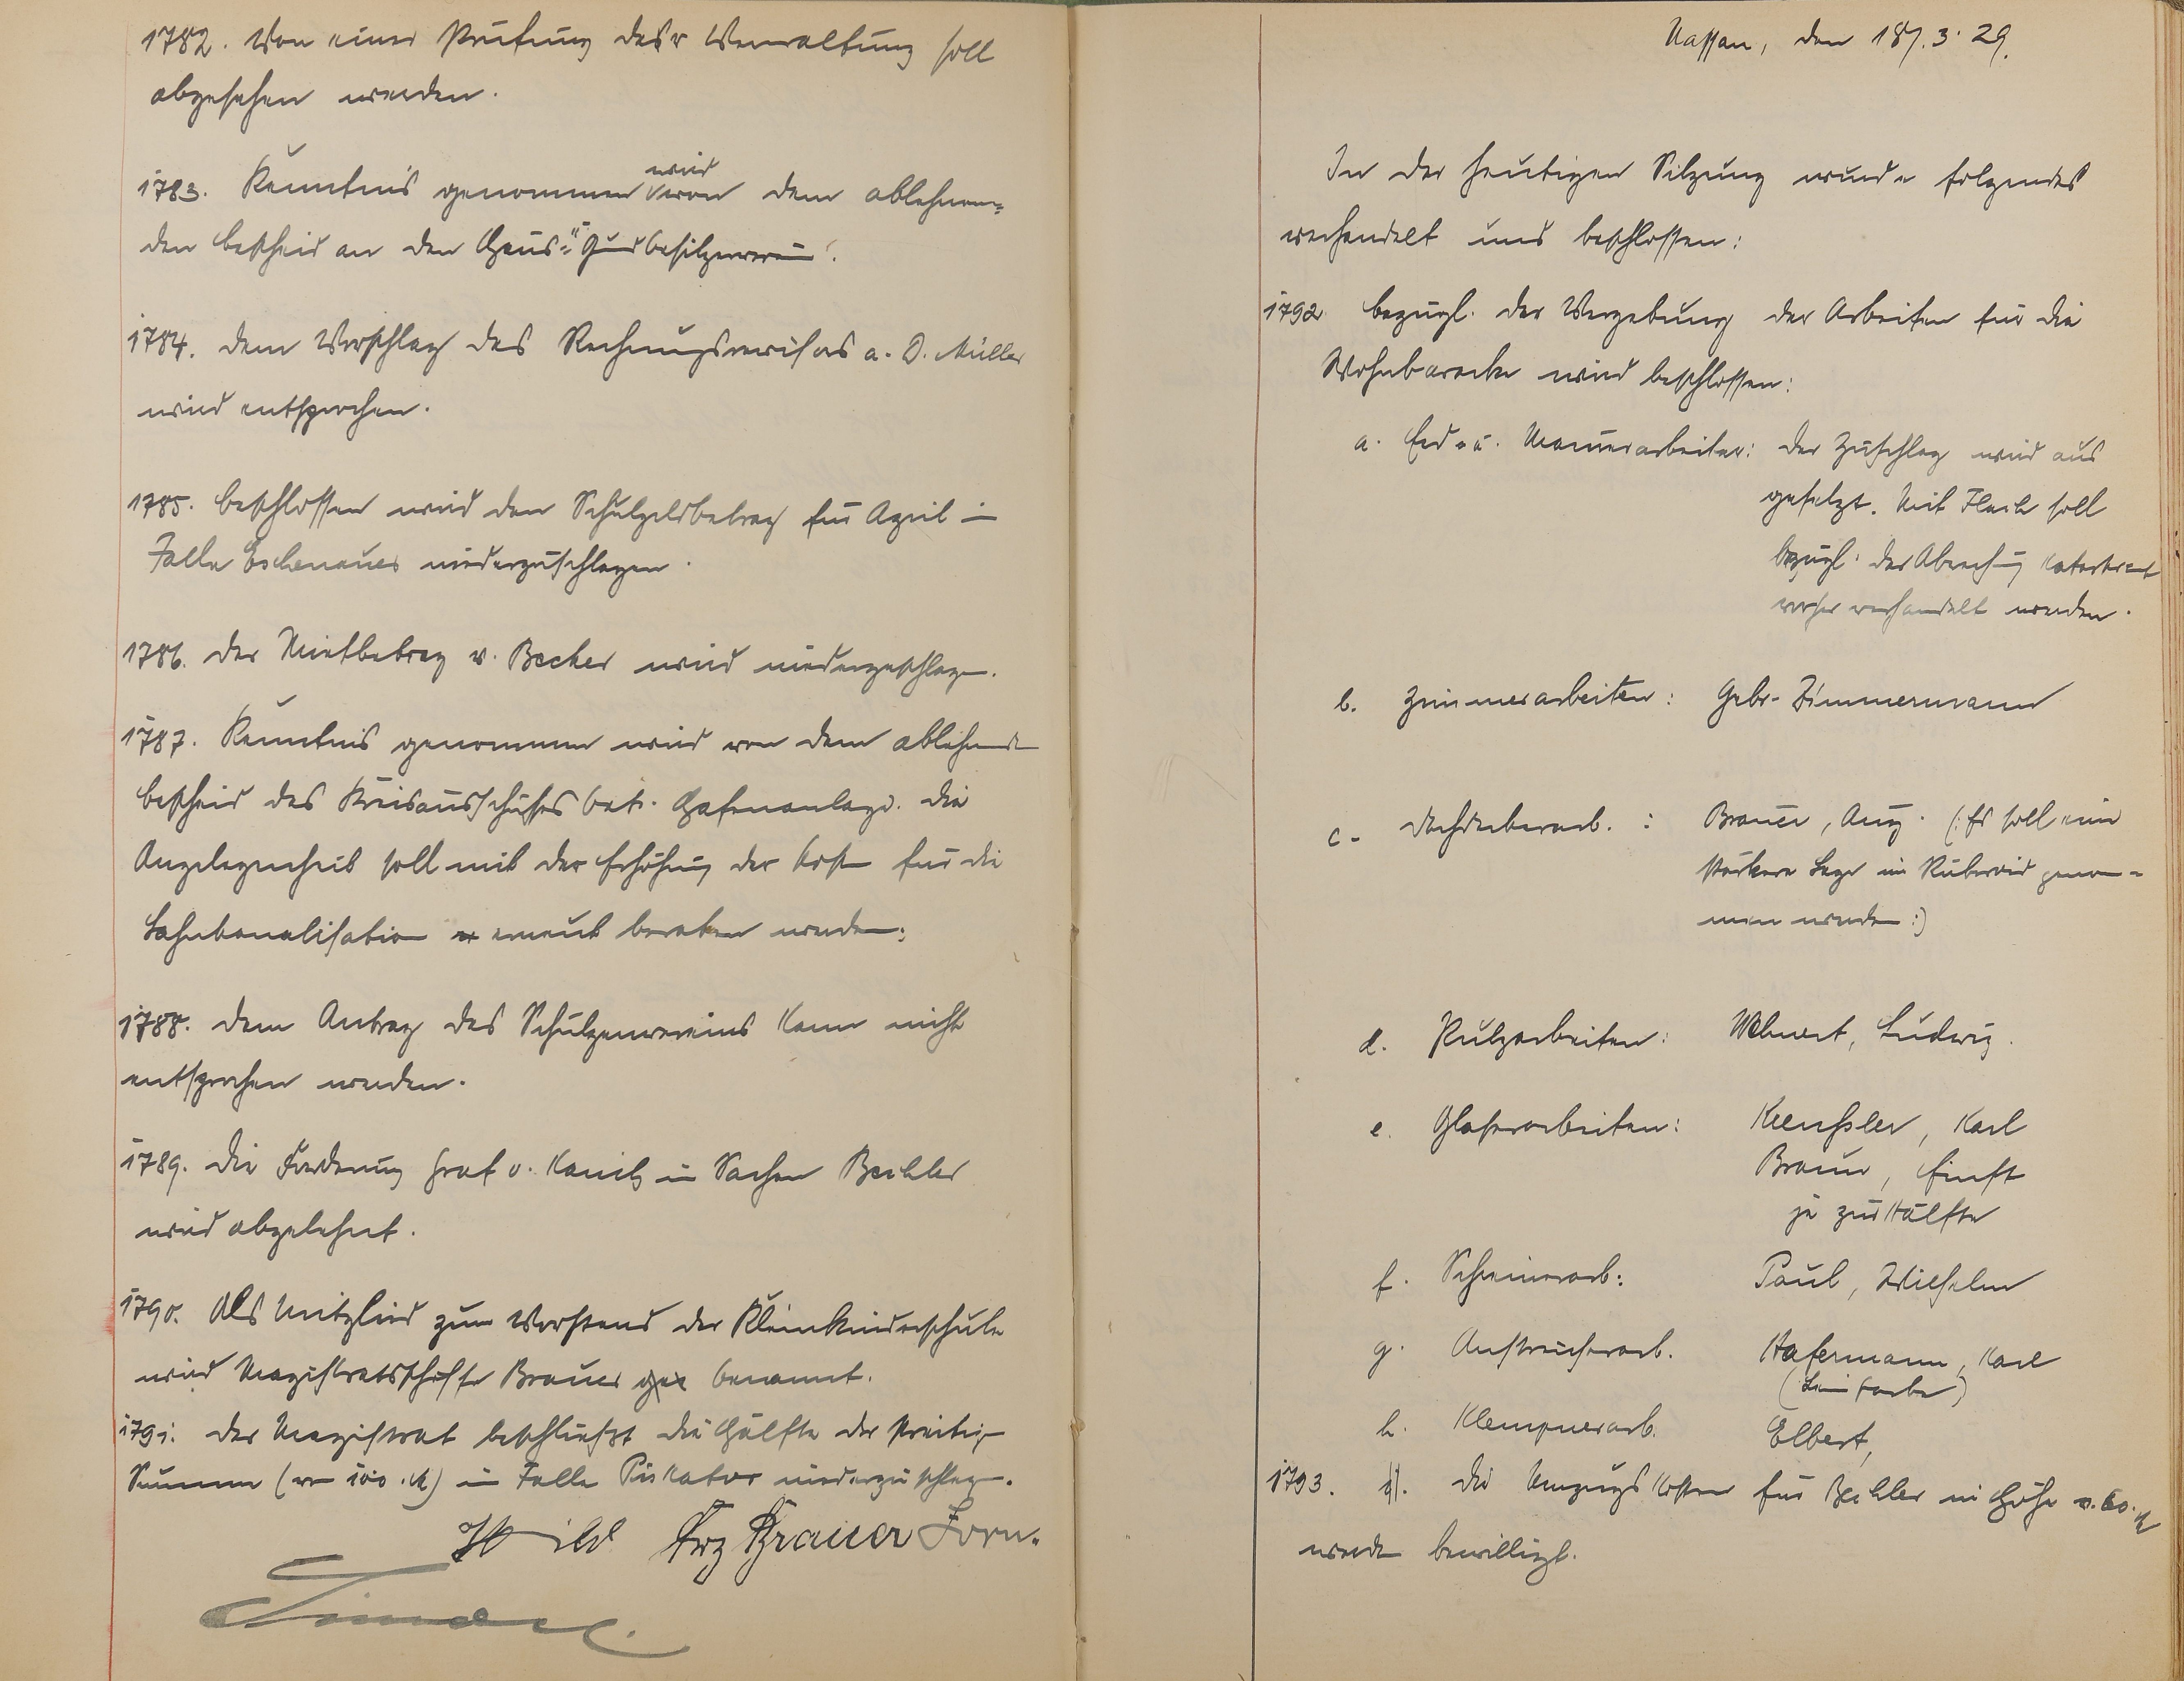 1782. Von einer Prüfung der Verwaltung soll
abgesehen werden.
1783. Kenntnis genommen wird von dem ablehnen=
den Bescheid an den Haus= u. Grundbesitzerverein.
1784. Dem Vorschlag des Rechnungsrevisors a. D. Müller
wird entsprochen.
1785. Beschlossen wird den Schulgeldbetrag für April im
Falle Eschenauer niederzuschlagen.
1786. Der Mietbetrag v. Becker wird niedergeschlagen.
1787. Kenntnis genommen wird von dem ablehnenden
Bescheid des Kreisausschusses betr. Hafenanlage. Die
Angelegenheit soll mit der Erhöhung der Kosten für die
Lahnkanalisation erneut beraten werden.
1788. Dem Antrag des Schützenvereins kann nicht
entsprochen werden.
1789. Die Forderung Graf v. Kanitz in Sachen Bechler
wird abgelehnt.
1790. Als Mitglied zum Vorstand der Kleinkinderschule
wird Magistratsschöffe Brauer benannt.
1791. Der Magistrat beschließt die Hälfte der streitigen
Summe (von 100 M) im Falle Piskator niederzuschlagen.
Brauer Zorn.
Nassau, den 18. 3. 29.
In der heutigen Sitzung wurde folgendes
verhandelt und beschlossen:
1792. Bezügl. der Vergebung der Arbeiten für die
Wohnbaracke wird beschlossen:
a. Erd- u. Maurerarbeiten: Der Zuschlag wird aus
gesetzt. Mit Flach soll
bezügl. der Abrechnung
vorher verhandelt werden.
b. Zimmerarbeiten: Gebr. Zimmermann
c. Dachdeckerarb.: Brauer, Aug. (: Es soll eine
stärkere Lage in Ruberoid genom=
men werden :)
d. Putzarbeiten: Ludwig.
e. Glaserarbeiten: Karl
Braun, Ernst
je zur Hälfte
f. Schreinerarb: Paul, Wilhelm
g. Anstreicherarb. Hafermann, Karl
(Leimfarbe)
h. Klempnerarb. Elbert,
1793. Die Umzugskosten für Bechler in Höhe v. 60. M
werden bewilligt.